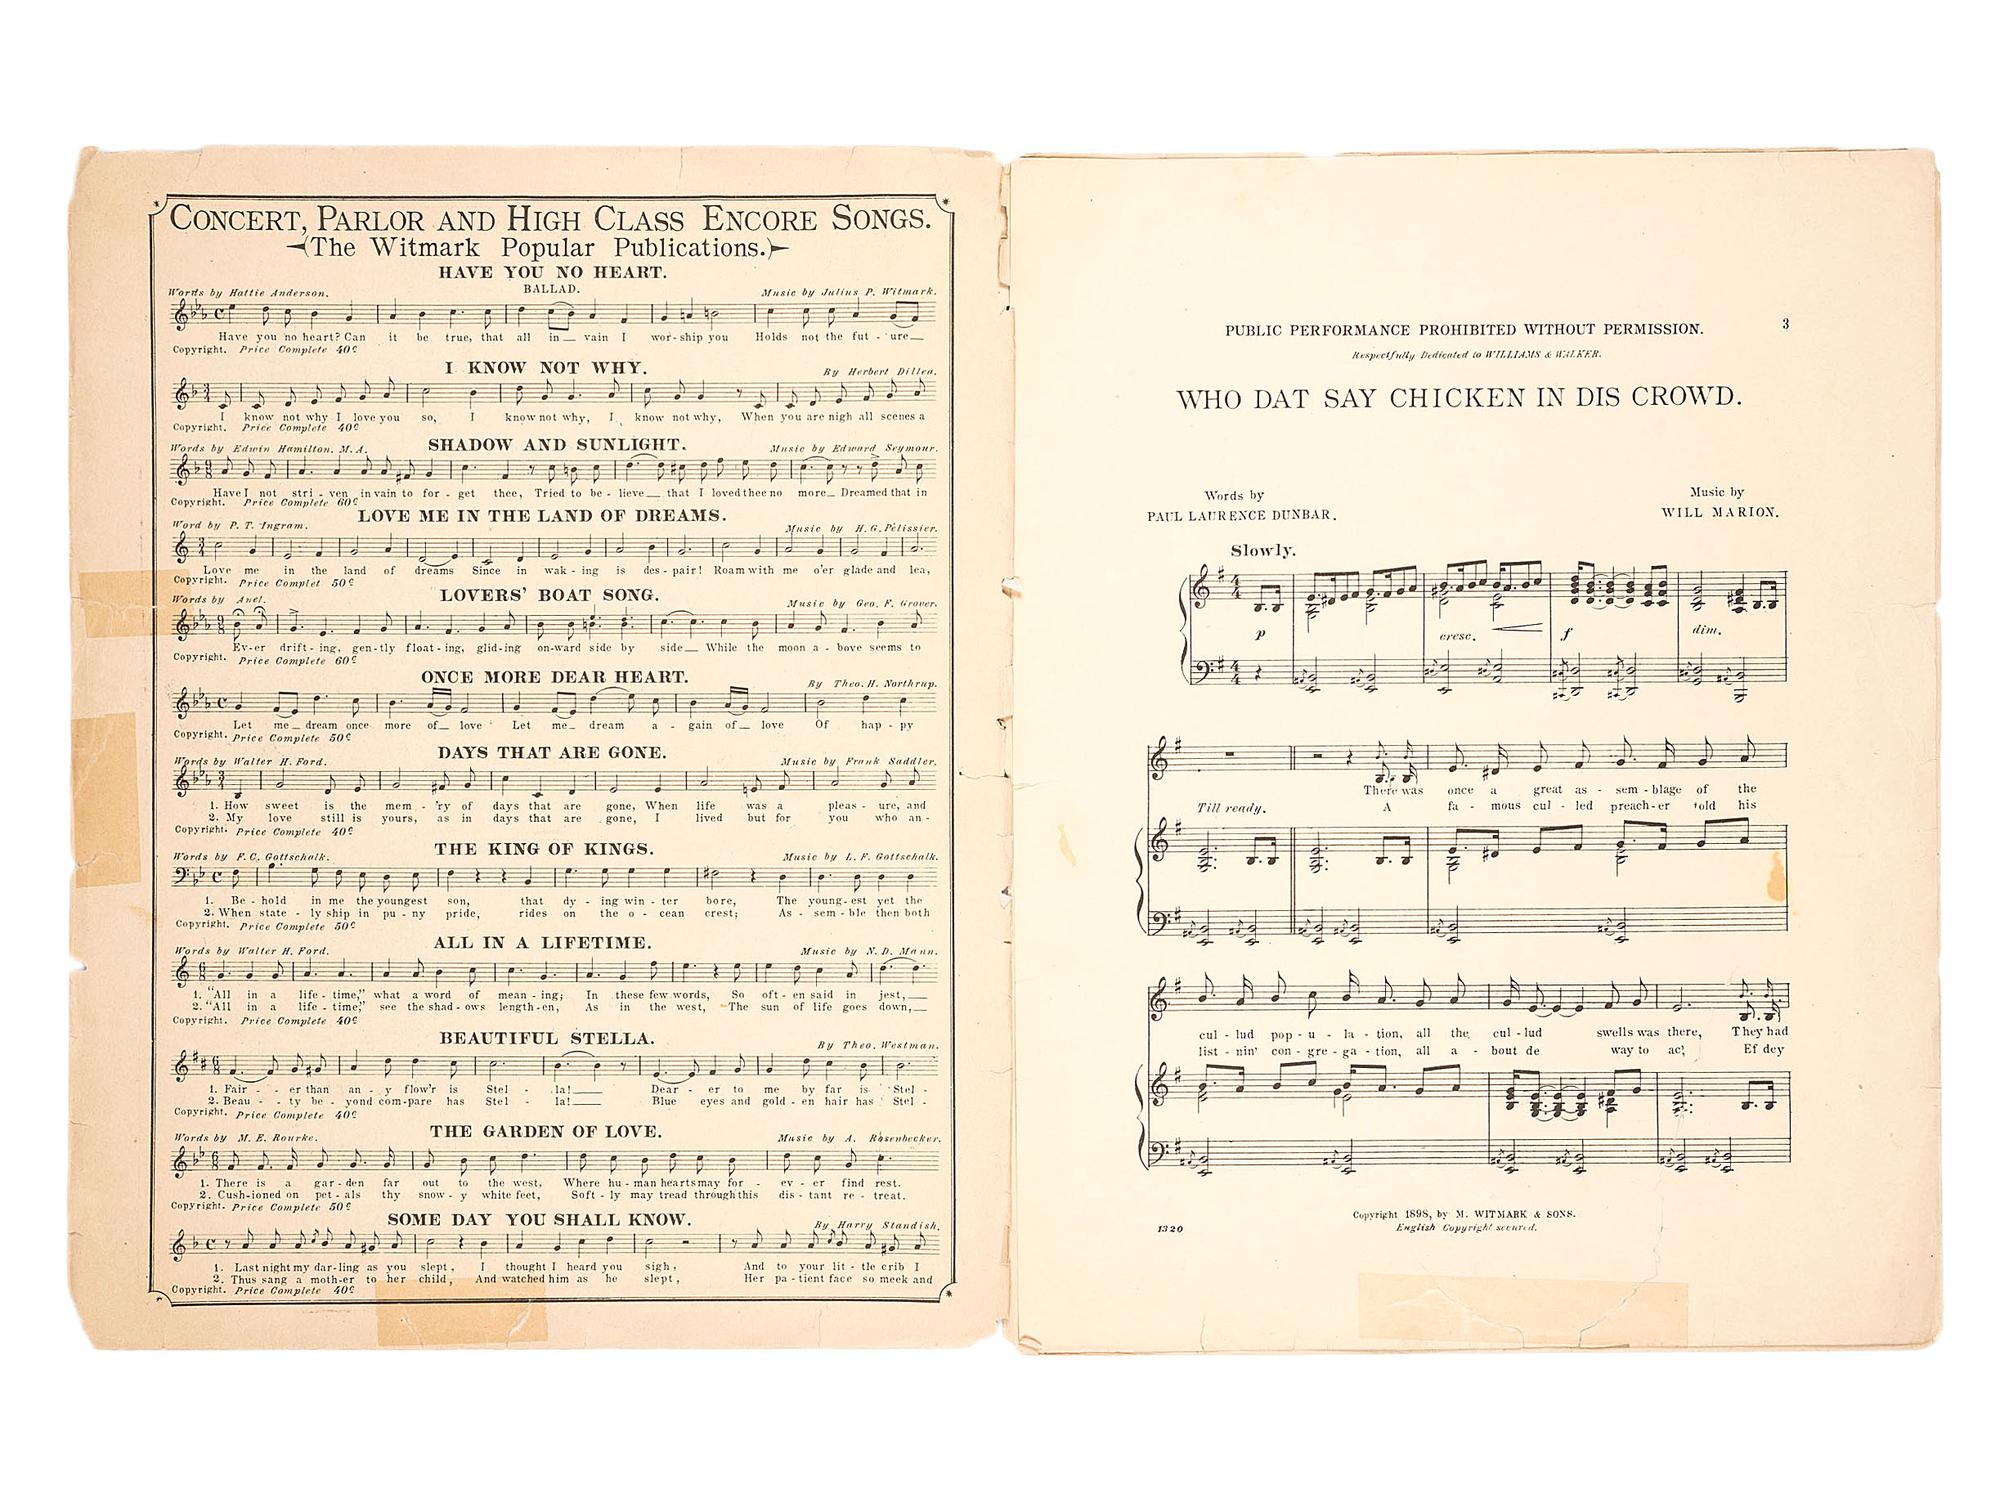 CONCERT, PARLOR AND HIGH CLASS ENCORE SONGS.
(The Witmark Popular Publications.)
HAVE YOU NO HEART.
BALLAD.
Words by Hattie Anderson.
Music by Julius P. Witmark.
Have you no heart? Can it be true, that all in vain I wor-ship you Holds not the fut - ure
Copyright. Price Complete 40¢
I KNOW NOT WHY.
By Herbert Dillea.
I know not why I love you so, I know not why, I know not why, When you are nigh all scenes a
Copyright. Price Complete 40¢
SHADOW AND SUNLIGHT.
Words by Edwin Hamilton. M. A.
Music by Edward Seymour.
Have I not stri - ven in vain to for - get thee, Tried to be - lieve that I loved thee no more Dreamed that in
Copyright. Price Complete 60¢
LOVE ME IN THE LAND OF DREAMS.
Word by P. T. Ingram.
Music by H. G. Pèlissier.
Love me in the land of dreams Since in wak - ing is des - pair! Roam with me o'er glade and lea,
Copyright. Price Complet 50¢
LOVERS' BOAT SONG.
Words by Anel.
Music by Geo. F. Grover.
Ev-er drift - ing, gen-tly float - ing, glid-ing on-ward side by side While the moon a - bove seems to
Copyright. Price Complete 60¢
ONCE MORE DEAR HEART.
By Theo. H. Northrup.
Let me dream once more of love Let me dream a - gain of love Of hap - py
Copyright. Price Complete 50¢
DAYS THAT ARE GONE.
Words by Walter H. Ford.
Music by Frank Saddler.
1. How sweet is the mem - 'ry of days that are gone, When life was a pleas - ure, and
2. My love still is yours, as in days that are gone, I lived but for you who an -
Copyright. Price Complete 40¢
THE KING OF KINGS.
Words by F. C. Gottschalk.
Music by L. F. Gottschalk.
1. Be - hold in me the youngest son, that dy - ing win - ter bore, The young - est yet the
2. When state - ly ship in pu - ny pride, rides on the o - cean crest; As - sem - ble then both
Copyright. Price Complete 50¢
ALL IN A LIFETIME.
Words by Walter H. Ford.
Music by N. D. Mann.
1. "All in a life - time," what a word of mean - ing; In these few words, So oft - en said in jest,
2. "All in a life - time," see the shad - ows length-en, As in the west, The sun of life goes down,
Copyright. Price Complete 40¢
BEAUTIFUL STELLA.
By Theo. Westman.
1. Fair - - er than an - y flow'r is Stel - la! Dear - er to me by far is Stel -
2. Beau - - ty be - yond com-pare has Stel - la! Blue eyes and gold - en hair has Stel -
Copyright. Price Complete 40¢
THE GARDEN OF LOVE.
Words by M. E. Rourke.
Music by A. Rosenbecker.
1. There is a gar - den far out to the west, Where hu - man hearts may for - ev - er find rest.
2. Cush-ioned on pet - als thy snow - y white feet, Soft - ly may tread through this dis - tant re - treat.
Copyright. Price Complete 50¢
SOME DAY YOU SHALL KNOW.
By Harry Standish.
1. Last night my dar-ling as you slept, I thought I heard you sigh, And to your lit - tle crib I
2. Thus sang a moth-er to her child, And watched him as he slept, Her pa - tient face so meek and
Copyright. Price Complete 40¢
3
PUBLIC PERFORMANCE PROHIBITED WITHOUT PERMISSION.
Respectfully Dedicated to WILLIAMS & WALKER.
WHO DAT SAY CHICKEN IN DIS CROWD.
Words by
PAUL LAURENCE DUNBAR.
Music by
WILL MARION.
Slowly.
p cresc. f dim.
There was once a great as - sem - blage of the
Till ready. A fa - mous cul - led preach-er told his
cul - lud pop - u - la - tion, all the cul - lud swells was there, They had
list - nin' con - gre - ga - tion, all a - bout de way to ac', Ef dey
Copyright 1898, by M. WITMARK & SONS.
English Copyright secured.
1320